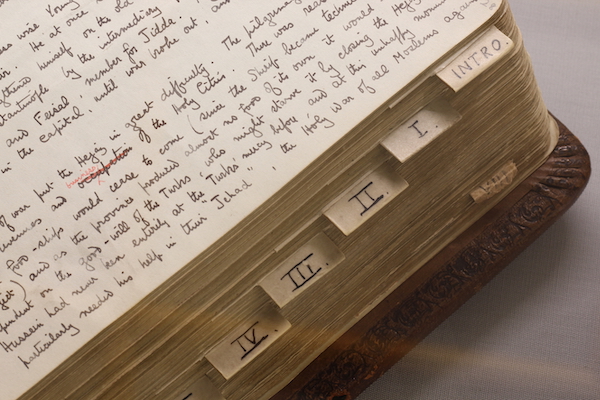 wise Young
He at once on the old
himself on the
by the intermediary
and Feisal, member for Jidda.
in the capital, until war broke out, and
of war put the Hejaz in great difficulty. The pilgrimage
revenues and business occupation of the Holy Cities. There was reason
food-ships would cease to come (since the Sherif became
ject) and as the province produced almost no food of its own it would
pendent on the good-will of the Turks who might starve it by closing the Hejaz
Hussein had never been entirely at the Turks' mercy before and at this unhappy moment
particularly needed his help in their "Jehad", the Holy War of all Moslems against
INTRO.
I.
II
III
IV
VIII